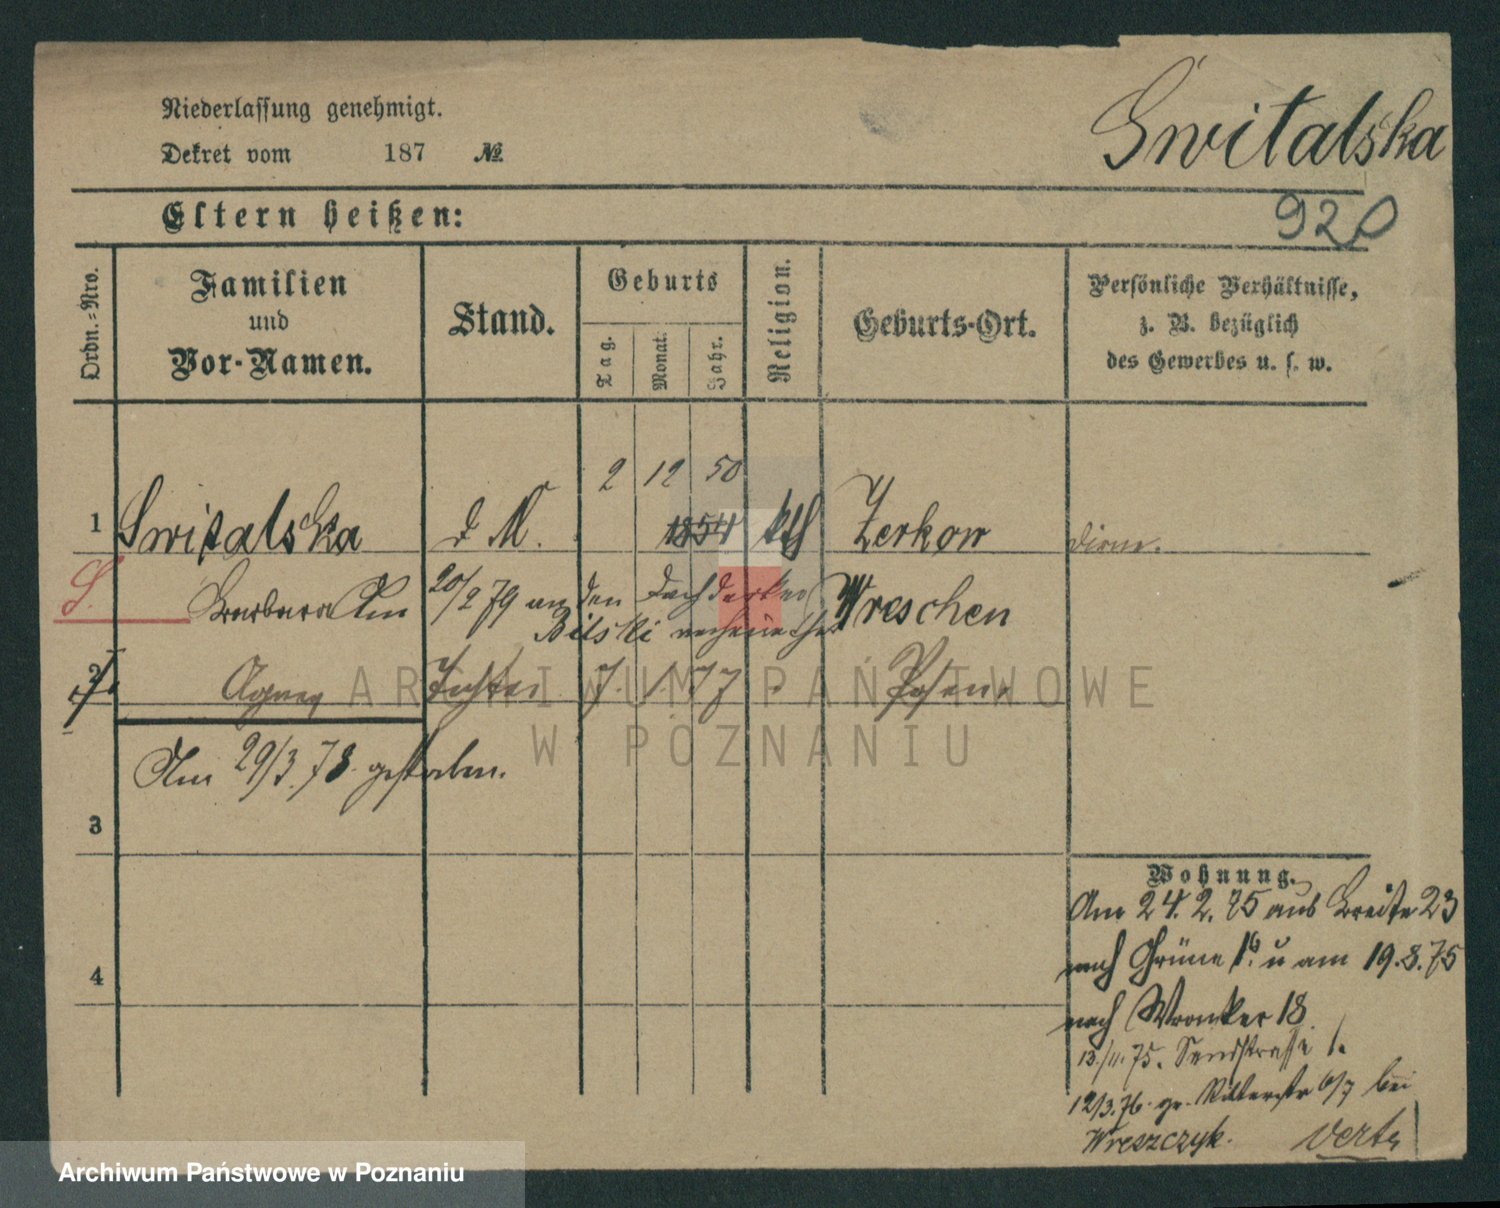 Niederlassung genehmigt.
Dekret vom 187 №
Switalska
920
Eltern heißen:
Ordn.-Nro.
Familien
und
Vor-Namen.
Stand.
Geburts
Tag.
Monat.
Jahr.
Religion.
Geburts-Ort.
Persönliche Verhältnisse,
z. B. bezüglich
des Gewerbes u. s. w.
2 12 50
1 Switalska d M. 1854 kth Zerkow Dirne.
S. Barbara Am 20/2 79 an den Dachdecker Wreschen
Bilski verheirathet
2 Agnes Tochter 7. 1. 77 Posen
Am 29/3.78. gestorben.
3
4
Wohnung.
Am 24.2.75 aus Breite 23
nach Grüne 1b. u am 19.8.75
nach Wronker 18
13/11.75. Sandstrasse 1.
12/3.76. Ritterstr 6/7 bei
Wreszczyk. verte
ARCHIWUM PAŃSTWOWE
W POZNANIU
Archiwum Państwowe w Poznaniu